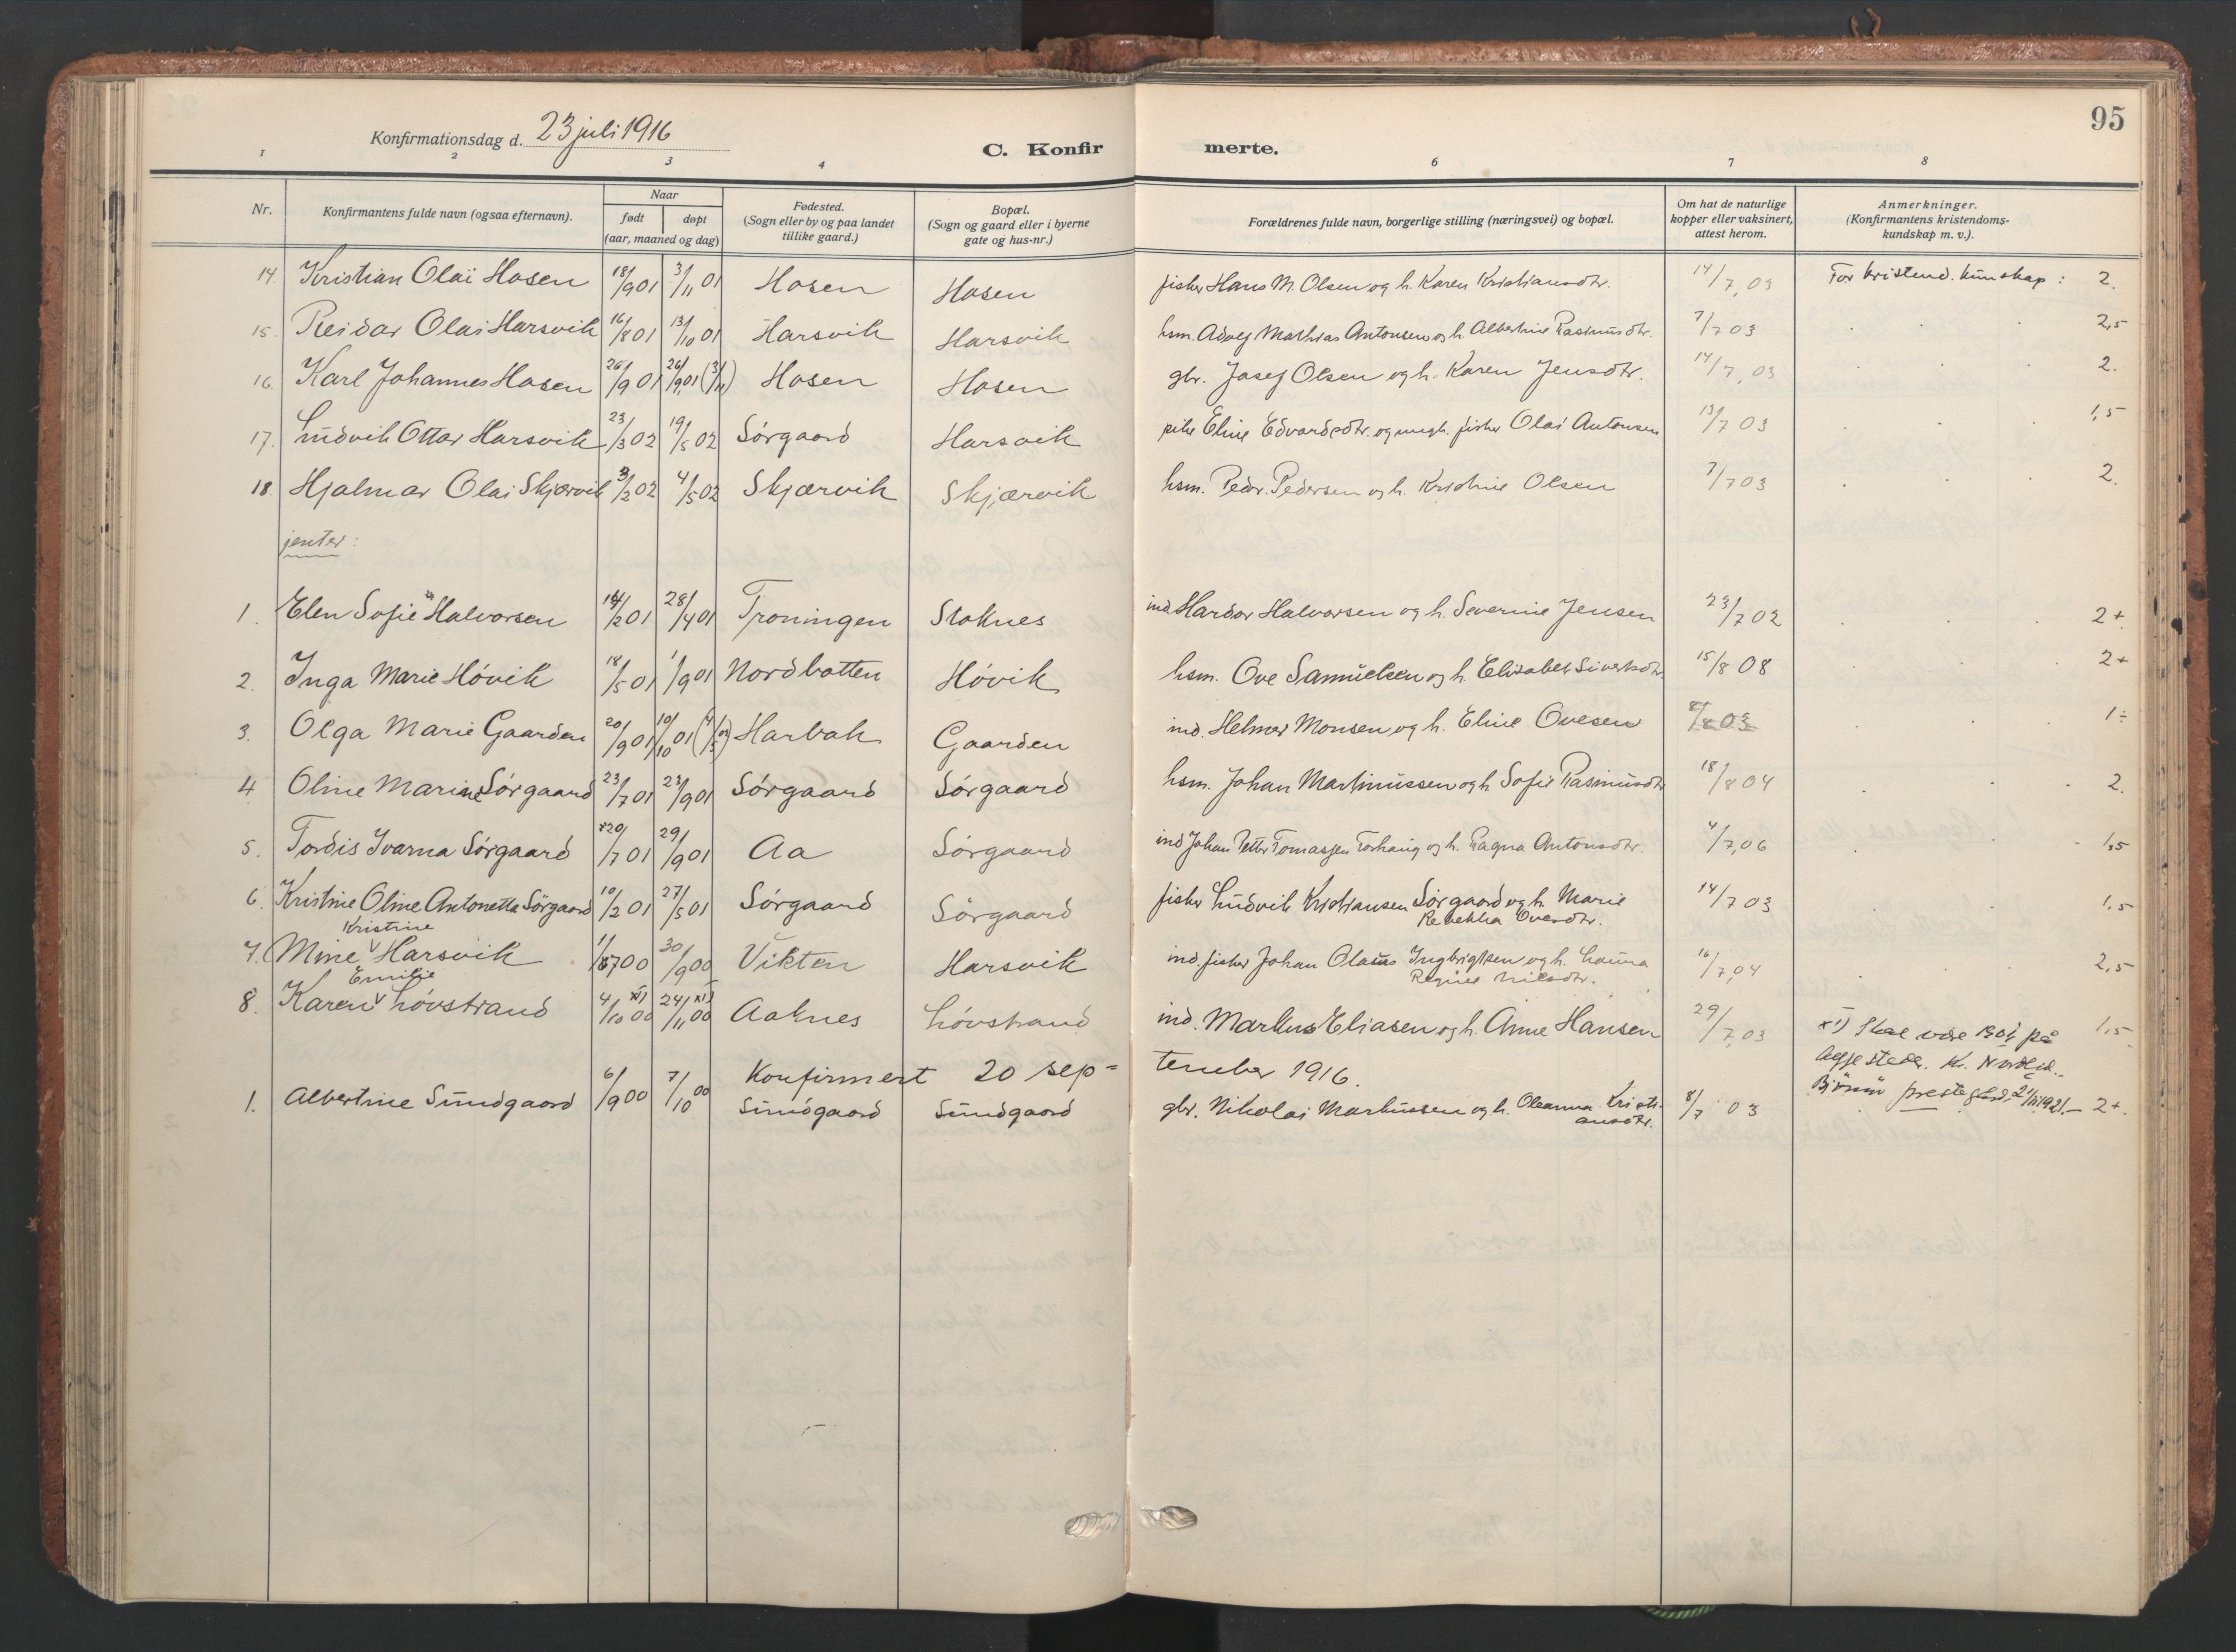 95
Konfirmationsdag d. 23 juli 1916
C. Konfirmerte.
1 2 3 4 6 7 8
Nr. Konfirmantens fulde navn (ogsaa efternavn). Naar født døpt (aar, maaned og dag) Fødested. (Sogn eller by og paa landet tillike gaard.) Bopæl. (Sogn og gaard eller i byerne gate og hus-nr.) Forældrenes fulde navn, borgerlige stilling (næringsvei) og bopæl. Om hat de naturlige kopper eller vaksinert, attest herom. Anmerkninger. (Konfirmantens kristendoms-kundskap m. v.).
14. Kristian Olai Hosen 18/9 01 3/11 01 Hosen Hosen fisker Hans M. Olsen og h. Karen Kristiansdtr. 14/7,03 For kristend. kunskap: 2.
15. Reidar Olai Harsvik 16/8 01 13/10 01 Harsvik Harsvik hsm. Adolf Mathias Antonsen og h. Albertine Rasmusdtr. 7/7 03 2,5
16. Karl Johannes Hosen 26/9 01 26/9 01 (3/11) Hosen Hosen gbr. Josef Olsen og h. Karen Jensdtr. 14/7,03 2.
17. Ludvik Ottar Harsvik 23/3 02 19/5 02 Sørgaard Harsvik pike Eline Edvardsdtr. og ungk. fisker Olai Antonsen 13/7 03 1,5
18. Hjalmar Olai Skjærvik 3/2 02 4/5 02 Skjærvik Skjærvik hsm. Peder Pedersen og h. Kristine Olsen 7/7 03 2.
jenter:
1. Elen Sofie Halvorsen 14/2 01 28/4 01 Troningen Stoknes ind. Hardor Halvorsen og h. Severine Jensen 23/7 02 2+
2. Inga Marie Hóvik 18/5 01 1/9 01 Nordbotten Hóvik hsm. Ove Samuelsen og h. Elisabet Sivertsdtr. 15/8 08 2+
3. Olga Marie Gaarden 20/9 01 10/10 01 Harbak Gaarden ind. Helmer Monsen og h. Eline Ovesen 8/8 03 1÷
4. Oline Marine Sórgaard 23/7 01 23/9 01 Sórgaard Sórgaard hsm. Johan Martinussen og h. Sofie Rasmusdtr 18/8 04 2.
5. Tordis Ivarna Sórgaard 20/7 01 29/9 01 Aa Sórgaard ind Johan Petter Tomassen Torhaug og h. Ragna Antonsdtr. 4/7,06 1,5
6. Kristine Oline Antonetta Sørgaard 10/2 01 27/5 01 Sórgaard Sórgaard fisker Ludvik Kristiansen Sørgaard og h. Marie
Rebekka Ovesdtr. 14/7 03 1,5
Kristine
7. Mine Harsvik 30/9 00 Vikten Harsvik ind. fisker Johan Olaus Ingbrigtsen og h. Launa
Regine Nilsdtr. 16/7,04 2,5
Emilie
8. Karen Lóvstrand 4/10 00 x1) 24/11 00 x1) Aaknes Lóvstrand ind. Markus Eliasen og h. Anne Hansen 29/7,03 x1) Skal være på 1,5
begge steder. Nordlid.
Bjørnør prestegård, 2/11 1921.
Konfirmert 20 september 1916.
1. Albertine Sundgaard 6/9 00 7/10 00 Sundgaard Sundgaard gbr. Nikolai Markussen og h. Oleanna Kristi-
ansdtr. 8/7 03 2+.